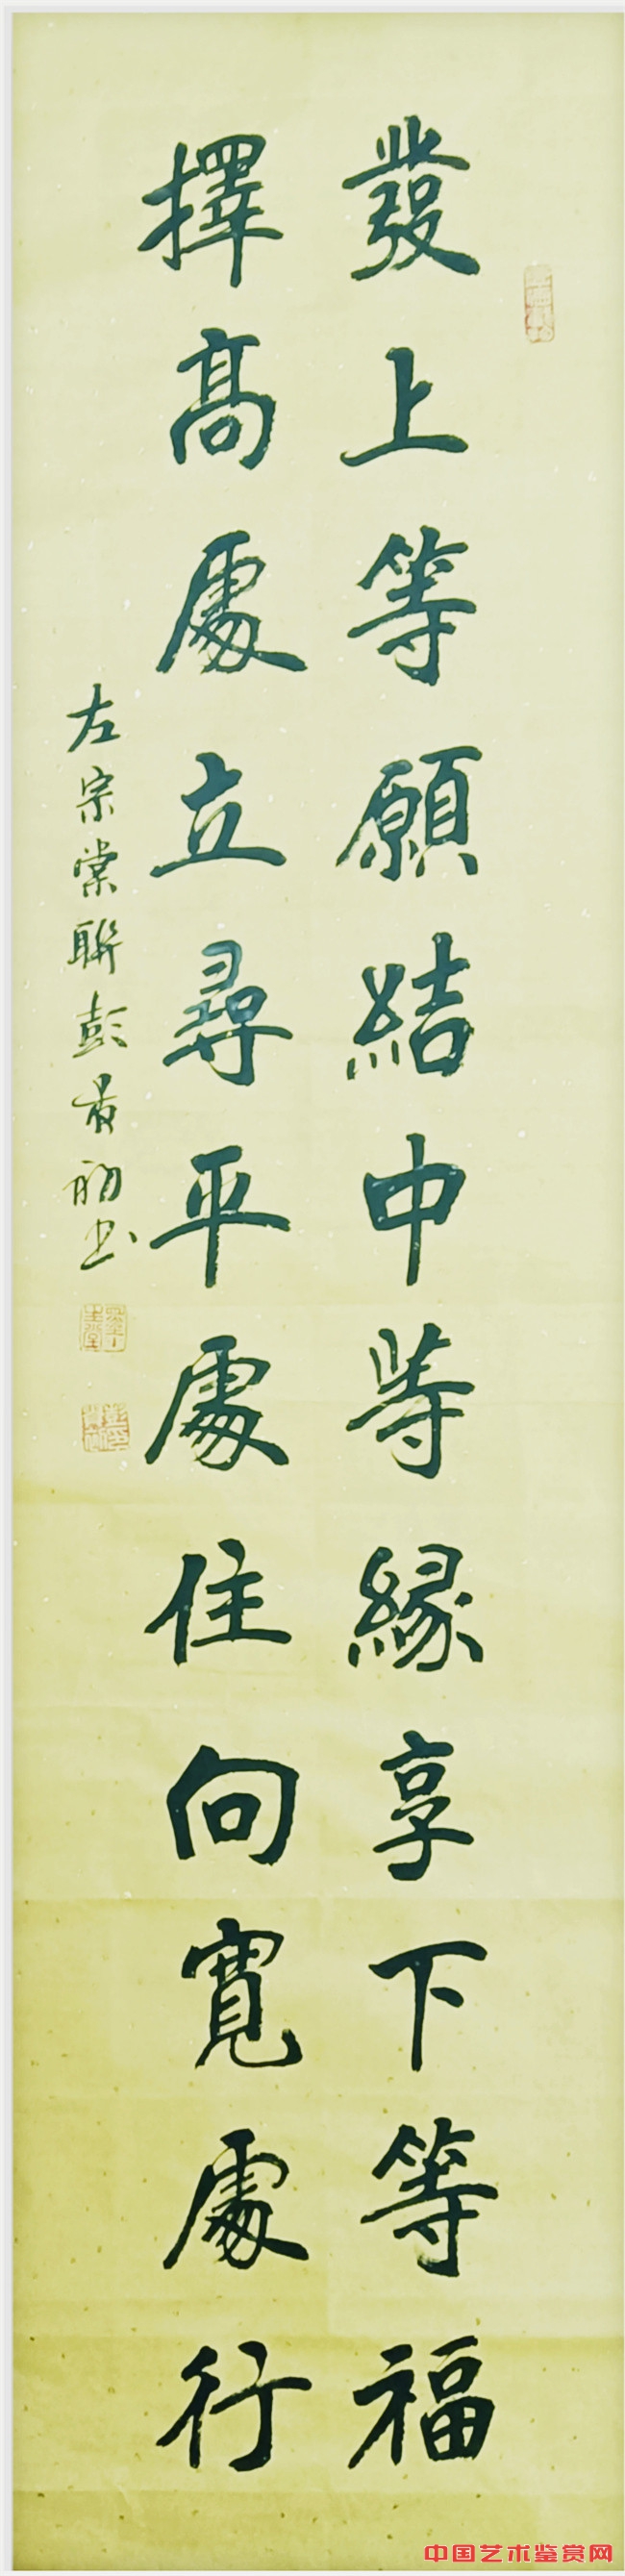 發上等願結中等緣享下等福
擇高處立尋平處住向寬處行
左宗棠聯彭書
中国艺术鉴赏网